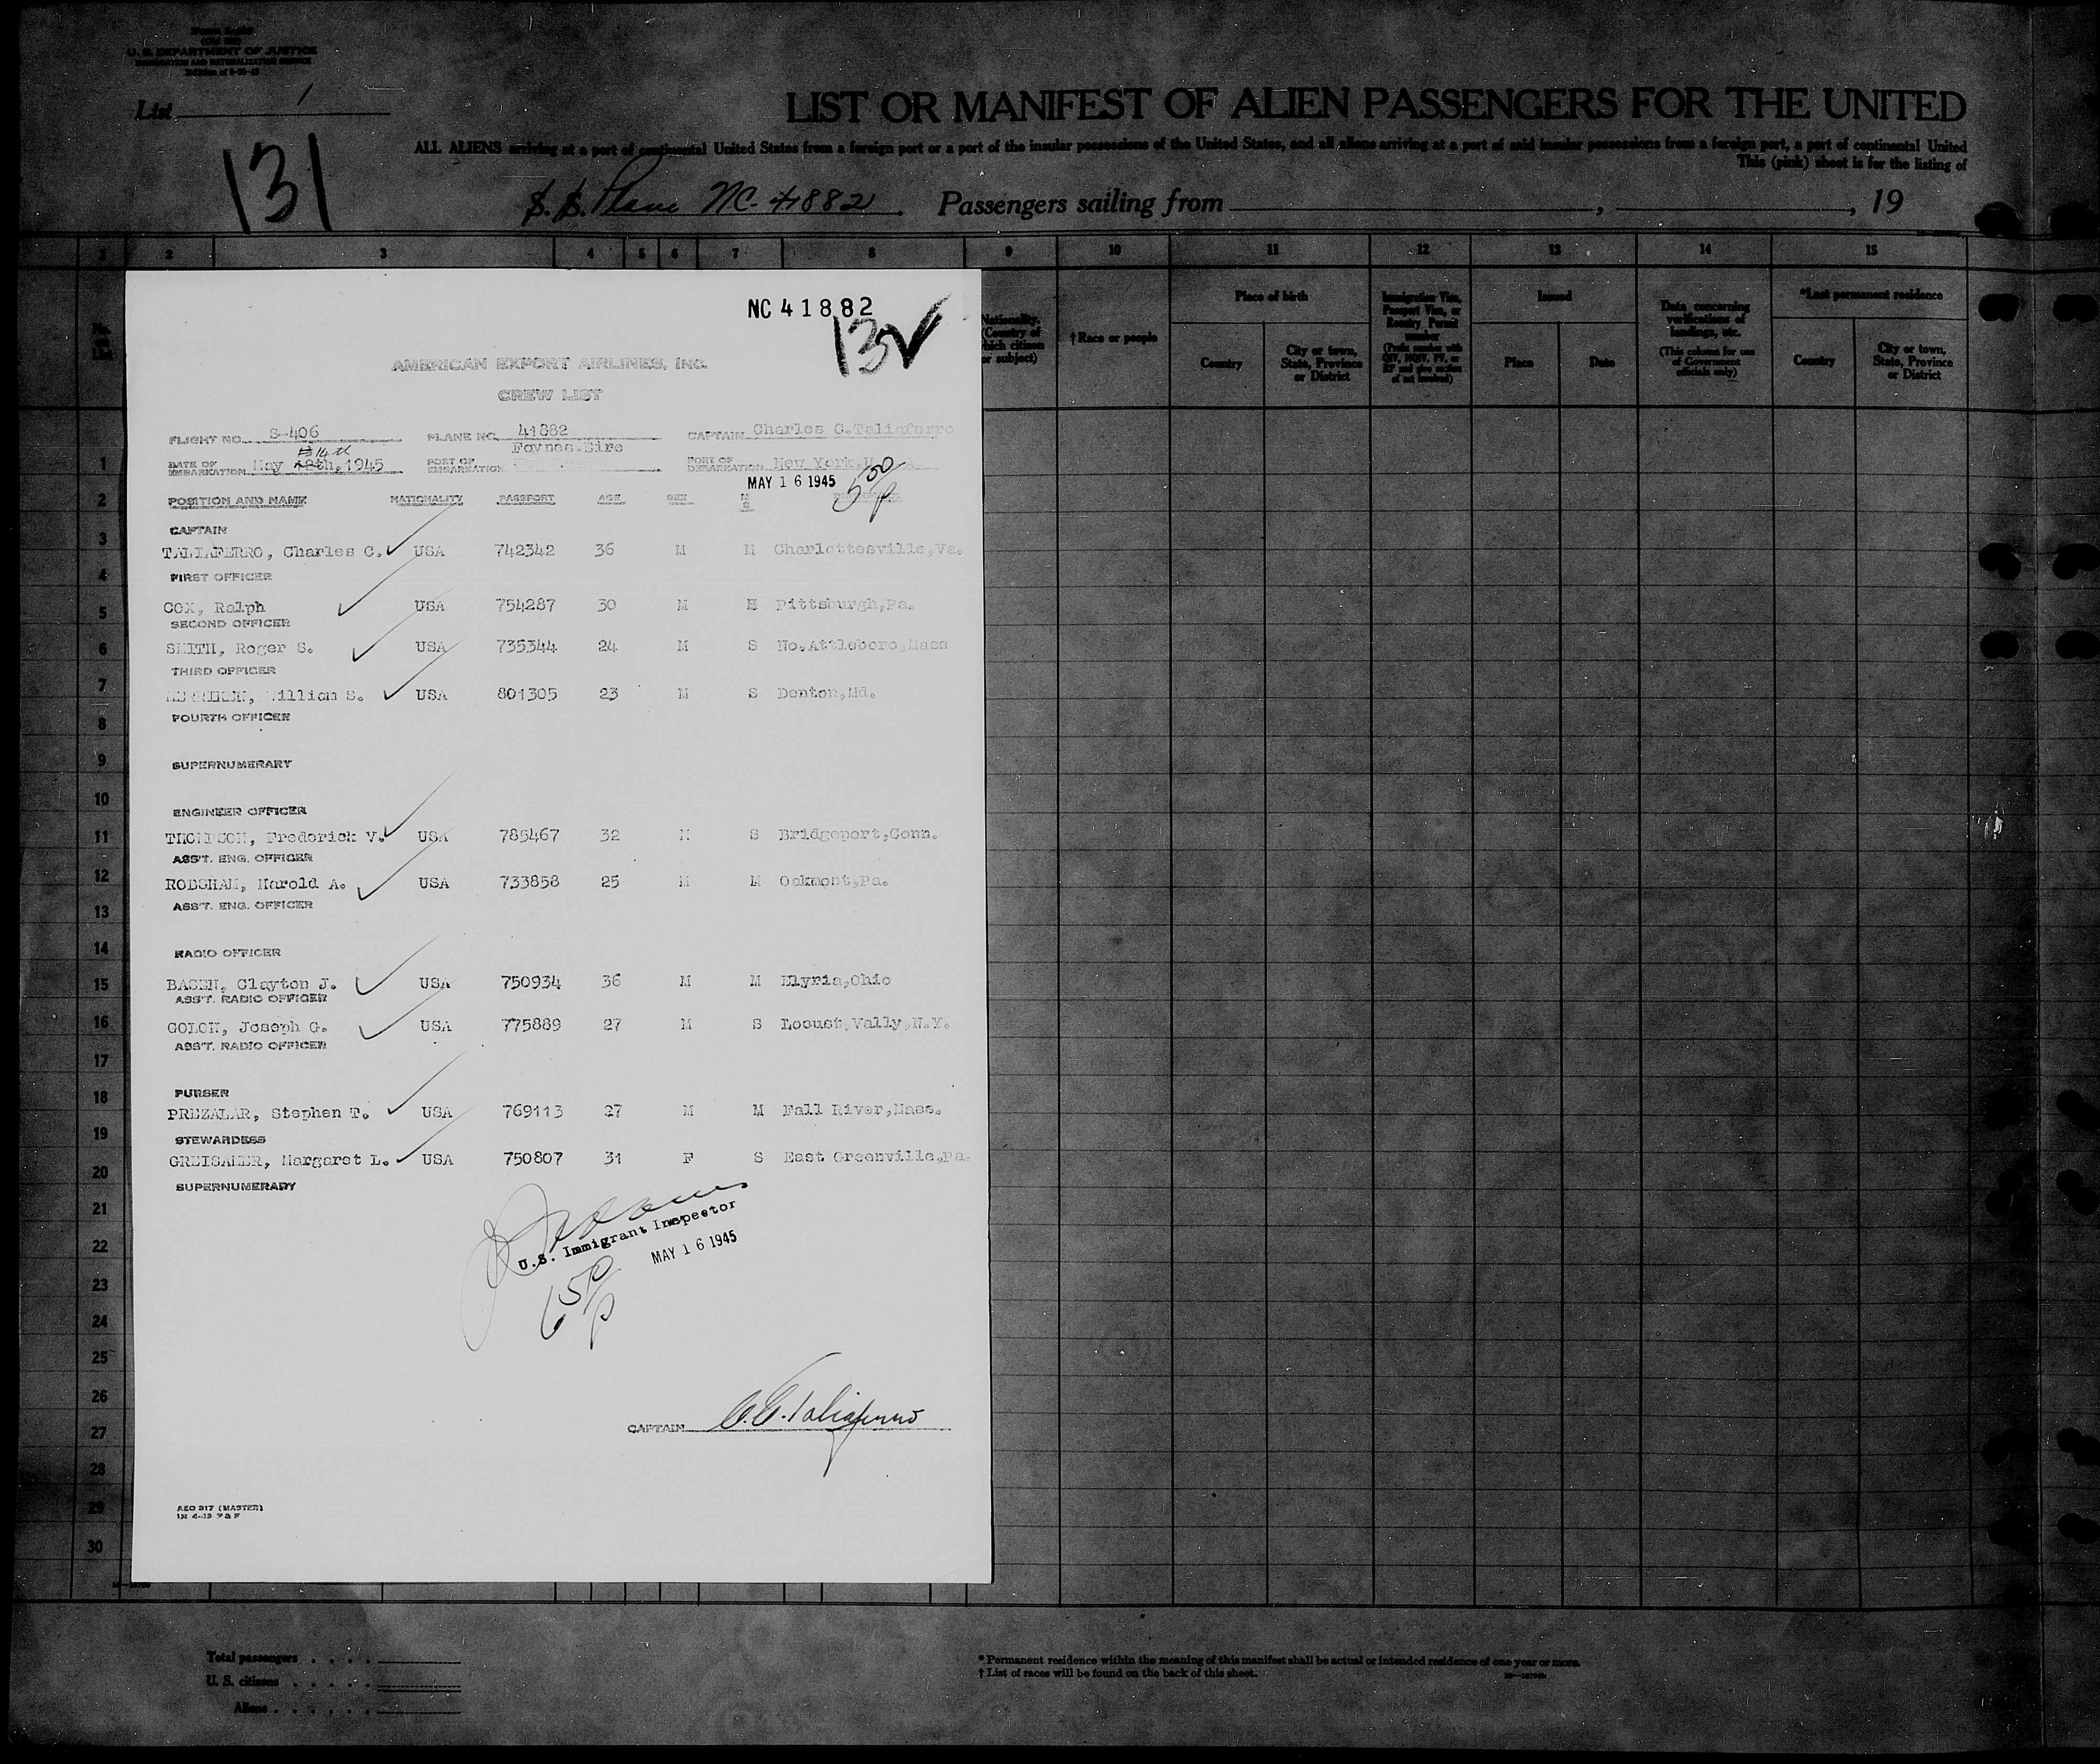 U. S. DEPARTMENT OF JUSTICE
IMMIGRATION AND NATURALIZATION SERVICE
List 1
LIST OR MANIFEST OF ALIEN PASSENGERS FOR THE UNITED
ALL ALIENS arriving at a port of continental United States from a foreign port or a port of the insular possessions of the United States, and all aliens arriving at a port of said insular possessions from a foreign port, a port of continental United
This (pink) sheet is for the listing of
131
S.S. Plane NC-41882. Passengers sailing from , , 19
1 2 3 4 5 6 7 8 9 10 11 12 13 14 15
Nationality. (Country of which citizen or subject)
†Race or people
Place of birth
Country
City or town, State, Province or District
Immigration Visa, Passport Visa, or Reentry Permit number
Issued
Place
Date
Data concerning verifications of landings, etc.
(This column for use of Government officials only)
*Last permanent residence
Country
City or town, State, Province or District
NC 41882
132
AMERICAN EXPORT AIRLINES, INC.
CREW LIST
FLIGHT NO. S-406 PLANE NO. 41882 CAPTAIN Charles C.Taliaferro
DATE OF EMBARKATION May 14th, 1945 PORT OF EMBARKATION Foynes.Eire PORT OF DEBARKATION New York,U
MAY 16 1945 5 00 P
POSITION AND NAME NATIONALITY PASSPORT AGE SEX M S
CAPTAIN
TALIAFERRO, Charles C. USA 742342 36 M M Charlottesville,Va.
FIRST OFFICER
COX, Ralph USA 754287 30 M M Pittsburgh,Pa.
SECOND OFFICER
SMITH, Roger S. USA 735344 24 M S No.Attleboro,Mass
THIRD OFFICER
MERRIKEN, William S. USA 801305 23 M S Denton,Md.
FOURTH OFFICER
SUPERNUMERARY
ENGINEER OFFICER
THOMPSON, Frederick V. USA 785467 32 M S Bridgeport,Conn.
ASS'T. ENG. OFFICER
ROBSHAW, Harold A. USA 733858 25 M M Oakmont,Pa.
ASS'T. ENG. OFFICER
RADIO OFFICER
BASEN, Clayton J. USA 750934 36 M M Elyria,Ohio
ASS'T. RADIO OFFICER
GOLON, Joseph G. USA 775889 27 M S Locust,Vally,N.Y.
ASS'T. RADIO OFFICER
PURSER
PREZALAR, Stephen T. USA 769113 27 M M Fall River,Mass.
STEWARDESS
GREISAMER, Margaret L. USA 750807 31 F S East Greenville,Pa.
SUPERNUMERARY
U.S. Immigrant Inspector
MAY 16 1945
6 50 P
CAPTAIN C.C.Taliaferro
AEO 317 (MASTER)
1
2
3
4
5
6
7
8
9
10
11
12
13
14
15
16
17
18
19
20
21
22
23
24
25
26
27
28
29
30
Total passengers . . . .
U. S. citizens . . . . .
Aliens . . . . . .
* Permanent residence within the meaning of this manifest shall be actual or intended residence of one year or more.
† List of races will be found on the back of this sheet.